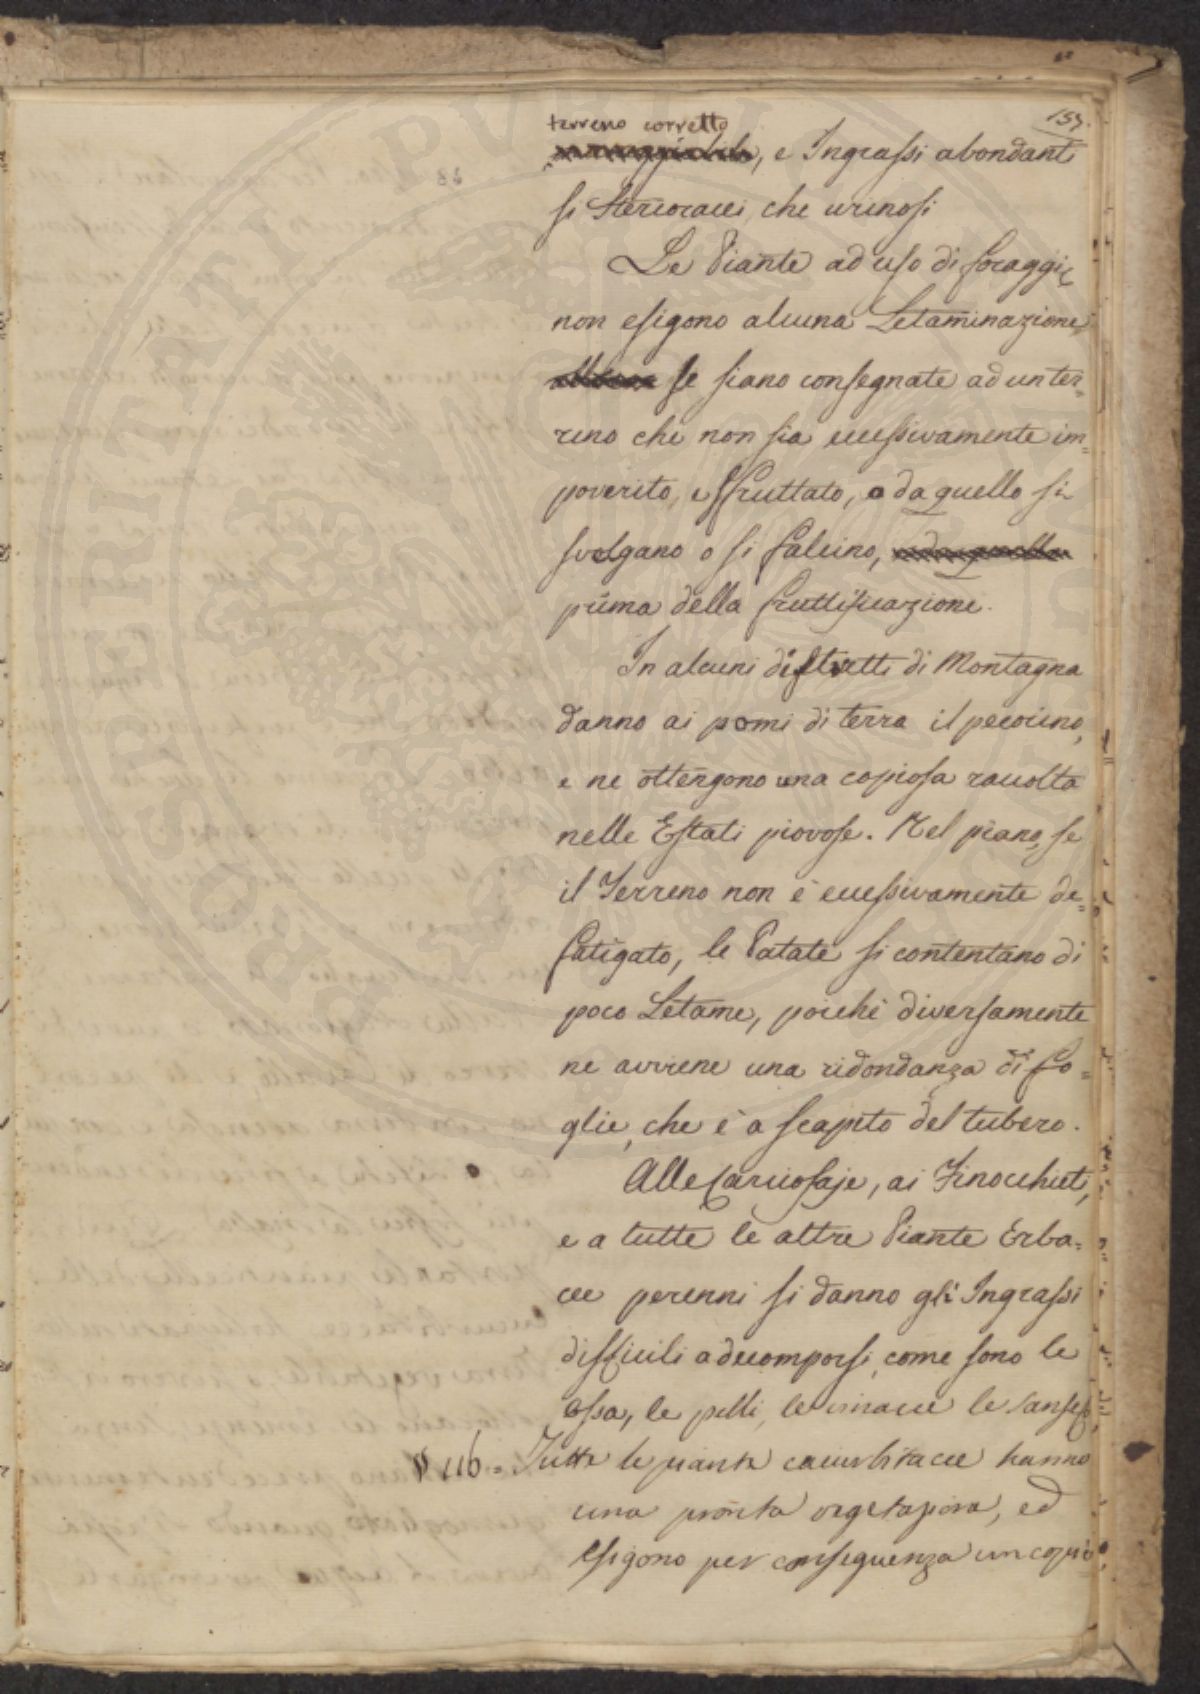 157.
terreno corretto
maneggiabile, e Ingrassi abondanti
si Stercoracei, che urinosi
Le Piante ad uso di foraggi,
non esigono alcuna Letaminazione,
se siano consegnate ad un ter=
reno che non sia eccessivamente im=
poverito, e sfruttato, o da quello si
svelgano o si falcino, e da quello
prima della fruttificazione.
In alcuni distretti di Montagna
danno ai pomi di terra il pecorino,
e ne ottengono una copiosa raccolta
nelle Estati piovose. Nel piano, se
il Terreno non è eccessivamente de=
fatigato, le Patate si contentano di
poco Letame, poichè diversamente
ne avviene una ridondanza di fo=
glie, che è a scapito del tubero.
Alle Carciofaje, ai Finocchieti,
e a tutte le altre Piante Erba=
cee perenni si danno gli Ingrassi
difficili a decomporsi, come sono le
Ossa, le pelli, le vinacce le sanse,
§ 116 = Tutte le piante cucurbitacee hanno
una pronta vegetazione, ed
esigono per conseguenza un copio
PROSPERITATI PVBLICAE